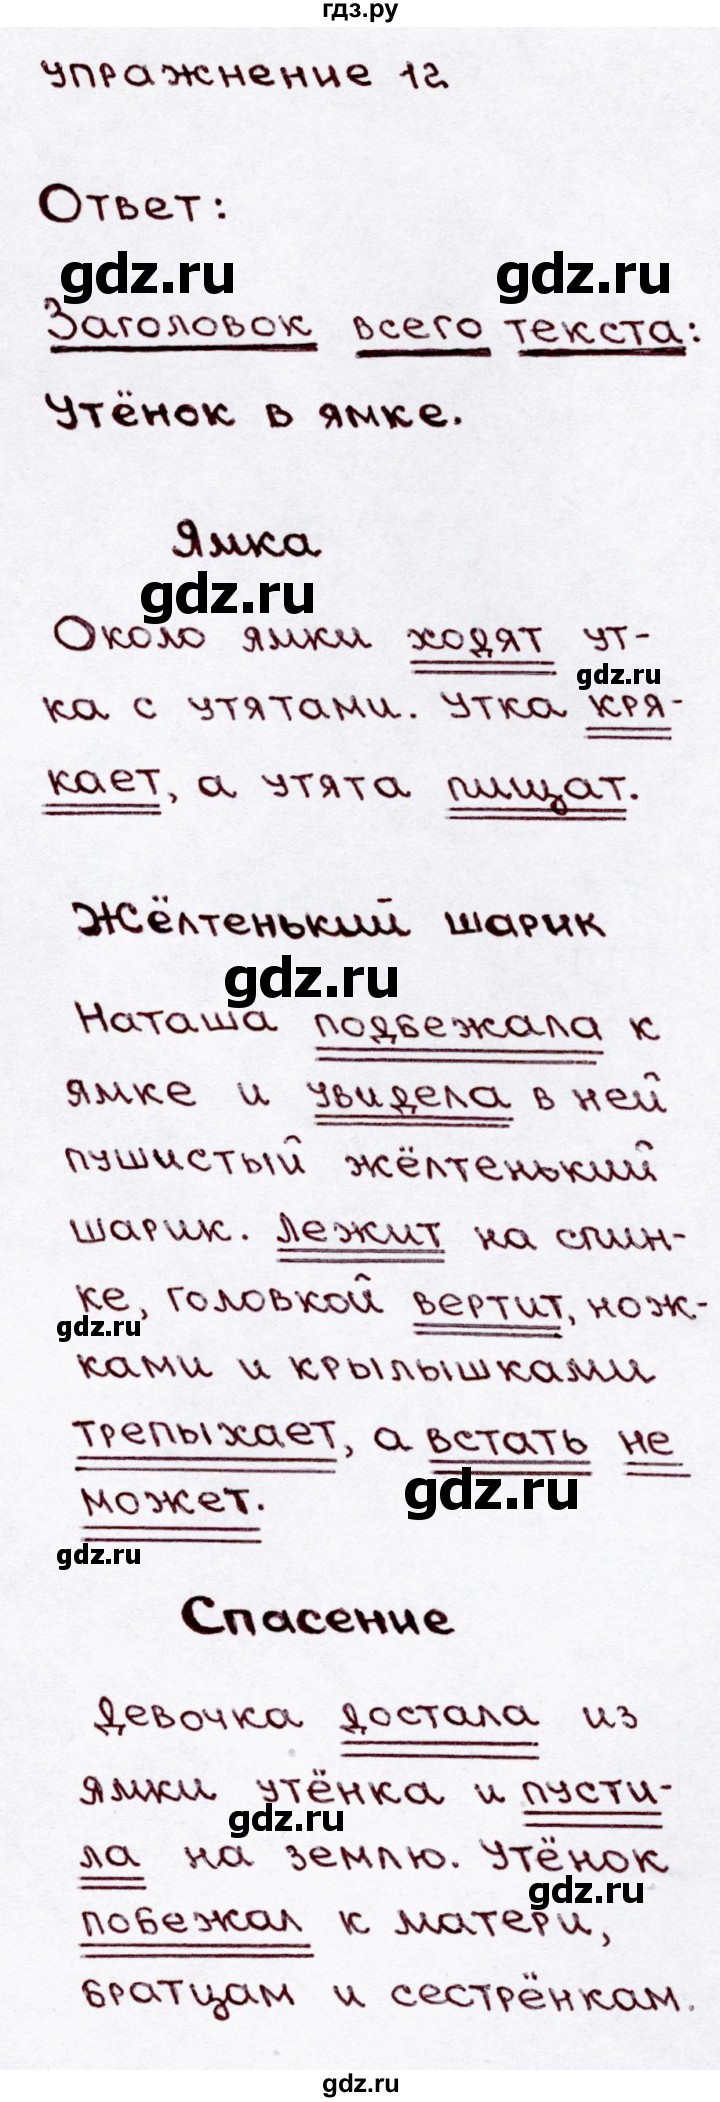 гдз.ру
упражнение 12
Ответ:
gdz.ru gdz.ru
Заголовок всего текста:
Утёнок в ямке.
Ямка
gdz.ru
Около ямки ходят ут-
gdz.ru
ка с утятами. Утка кря-
кает, а утята пищат.
Жёлтенький шарик
gdz.ru
Наташа подбежала к
ямке и увидела в ней
пушистый жёлтенький
шарик. Лежит на спин-
ке, головкой вертит, нож-
gdz.ru
ками и крылышками
трепыхает, а встать не
gdz.ru
может.
gdz.ru
Спасение
Девочка достала из
ямки утёнка и пусти-
gdz.ru
ла на землю. Утёнок
gdz.ru
побежал к матери,
братцам и сестрёнкам.
gdz.ru